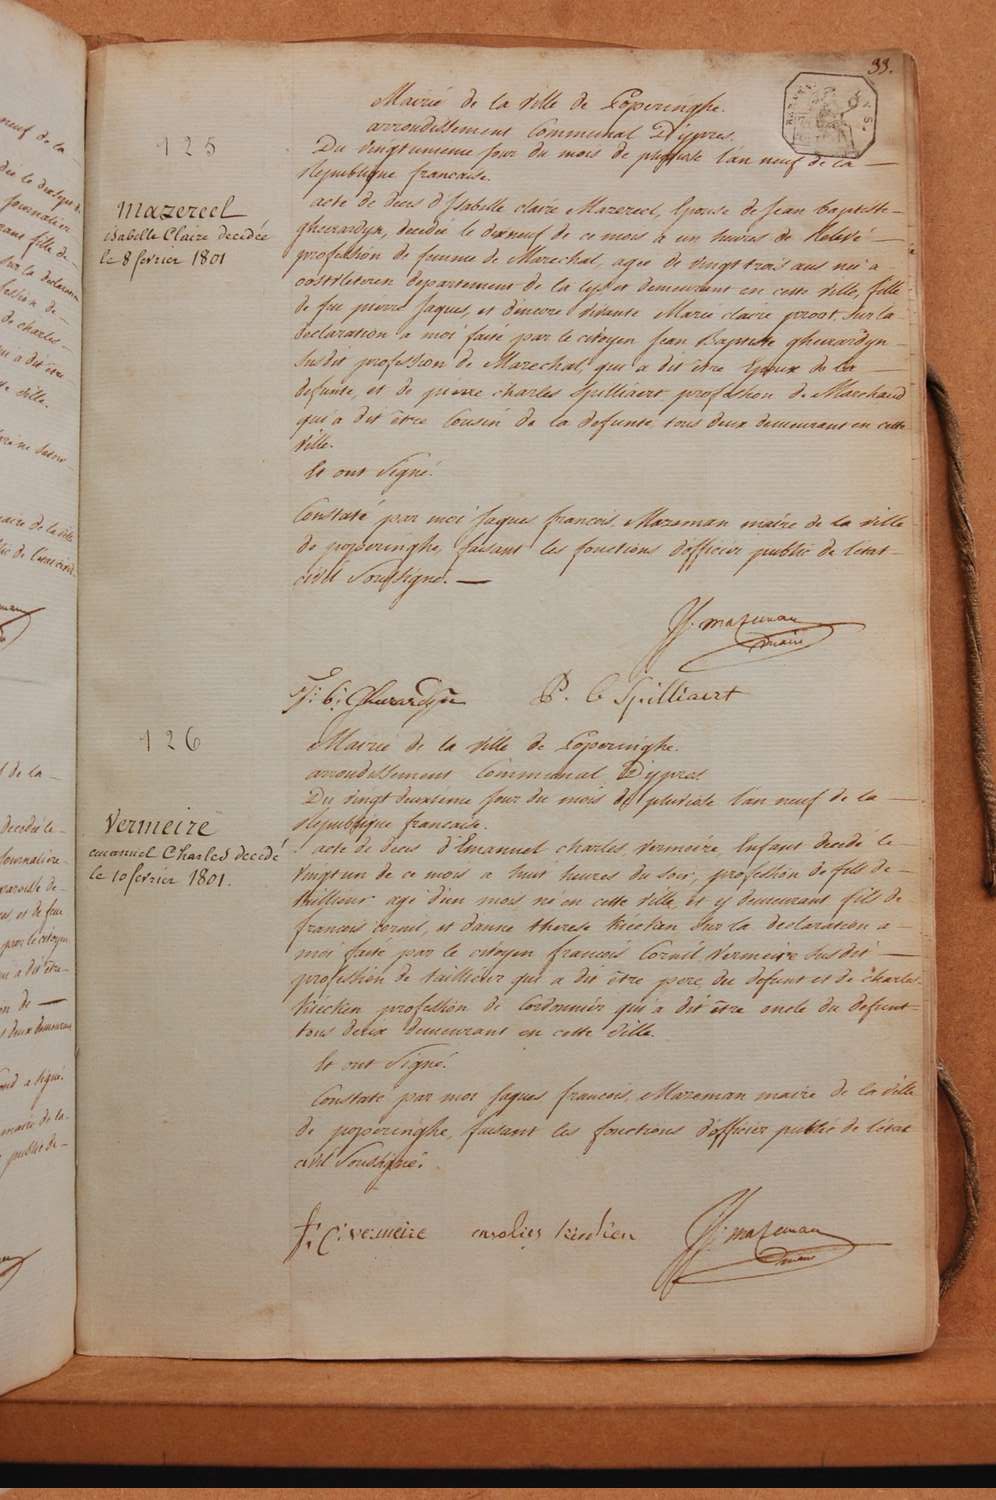 33.
Mairie de la ville de Poperinghe.
arrondissement Communal D'ypres.
125
Du vingtunieme jour du mois de pluviose l'an neuf de la —
Republique francaise.
Mazereel
isabelle Claire decedée
le 8 fevrier 1801
acte de deces d'Isabelle claire Mazereel, Epouse de Jean Baptiste —
gheerardyn, decedée le dixneuf de ce mois a un heures de Relevé —
profession de femme de Marechal, agée de vingt trois ans née a
oostvleteren departement de la Lys et demeurant en cette ville, fille
de feu pierre Jaques, et d'encore vivante Marie claire proot. Sur la
declaration a moi faite par le citoyen Jean Baptiste gheerardyn —
susdit profession de Marechal, qui a dit être Epoux de la —
defunte, et de pierre charles Spilliaert profession de Marchand
qui a dit être Cousin de la defunte, tous deux demeurant en cette
ville.
Et ont Signé.
Constaté par moi Jaques francois Mazeman maire de la ville
de poperinghe, faisant les fonctions d'officier public de l'etat —
civil Soussigné. —
J f. mazeman
maire
J: b: Gheerardyn P. C Spilliaert
126
Mairie de la ville de Poperinghe.
arrondissement Communal D'ypres.
Du vingt deuxième jour du mois de pluviose l'an neuf de la —
Republique francaise.
Vermeire
emanuel Charles decedé
le 10 fevrier 1801.
acte de deces d'Emanuel charles vermeire Enfant decedé le —
vingt un de ce mois a huit heures du soir, profession de fils de —
tailleur agé d'un mois né en cette ville, et y demeurant fils de
francois corneil, et d'anne therese Kiecken Sur la declaration a —
moi faite par le citoyen francois Corneil vermeire susdit —
profession de tailleur qui a dit être pere du defunt et de charles
Kiecken profession de Cordonnier qui a dit être oncle du defunt —
tous deux demeurant en cette ville.
Et ont Signé.
Constaté par moi Jaques francois Mazeman maire de la ville
de poperinghe, faisant les fonctions d'officier public de l'etat
civil Soussigné.
f: C: vermeire carolus kiecken J f. mazeman
maire